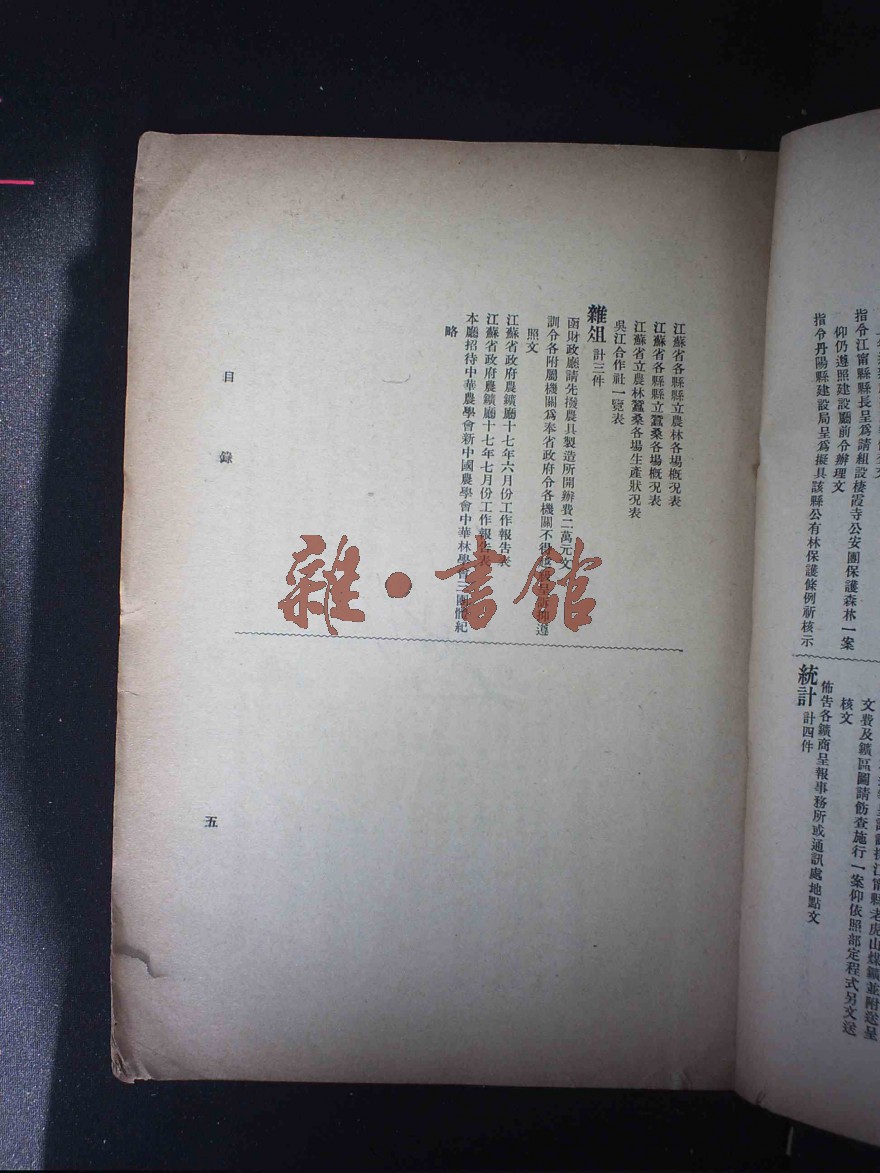 指令江甯縣縣長呈爲請組設棲霞寺公安團保護森林一案
仰仍遵照建設廳前令辦理文
指令丹陽縣建設局呈爲擬具該縣公有林保護條例祈核示
江甯縣老虎山煤鑛並附送呈
文費及鑛區圖請飭查施行一案仰依照部定程式另文送
核文
佈告各鑛商呈報事務所或通訊處地點文
統計 計四件
江蘇省各縣縣立農林各場概况表
江蘇省各縣縣立蠶桑各場概况表
江蘇省立農林蠶桑各場生產狀况表
吳江合作社一覽表
雜俎 計三件
函財政廳請先撥農具製造所開辦費二萬元文
訓令各附屬機關爲奉省政府令各機關不得遵
照文
江蘇省政府農鑛廳十七年六月份工作報告表
江蘇省政府農鑛廳十七年七月份工作報告表
本廳招待中華農學會新中國農學會中華林學會三團體紀
略
目錄
五
雜·書館